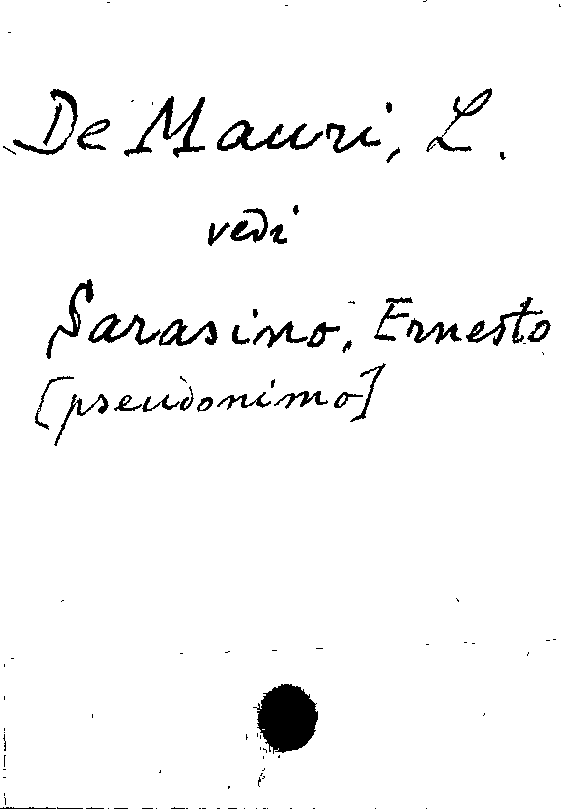 De Mauri, L.
vedi
Sarasino, Ernesto
[pseudonimo]